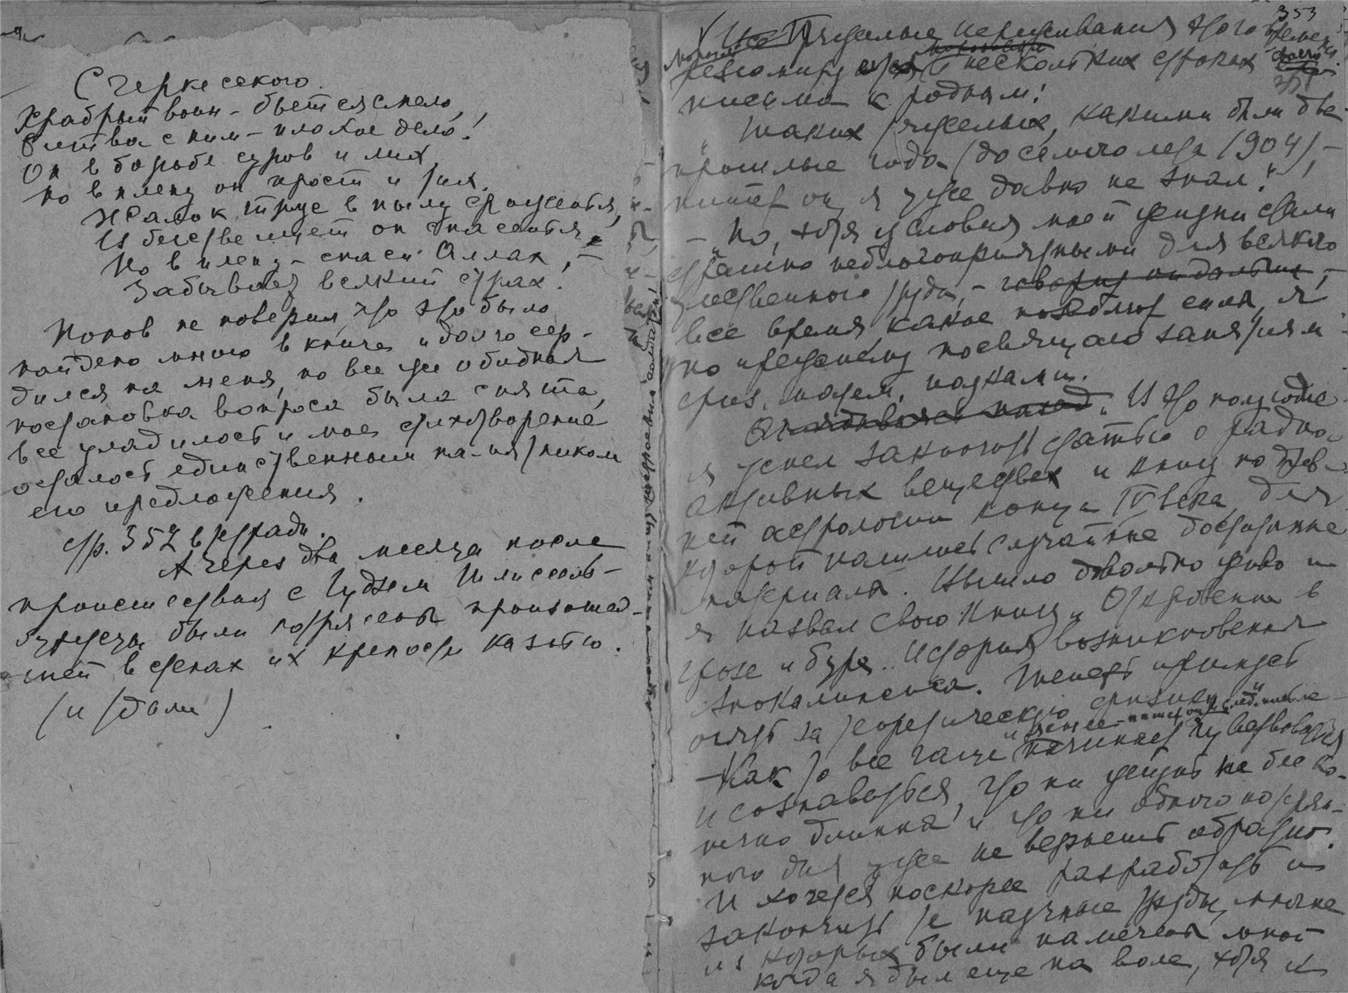 С черкесского.
Храбрый воин – бьется смело,
Битва с ним – плохое дело!
Он в борьбе суров и лих,
Но в плену он прост и тих.
Жалок трус в пылу сраженья,
И бегством ищет он спасенья,
Но в плену – спаси Аллах, –
Забывает всякий страх.
Попов не поверил, что это было
найдено мною в книге и долго сер-
дился на меня, но все же обидная
постановка вопроса была снята,
все уладилось и мое стихотворение
осталось единственным памятником
его предложения.
стр. 352 в тетради.
А через два месяца после
происшествия с Гудзем Шлиссель-
буржцы были потрясены происшед-
шей в стенах их крепости казнью.
(и т. дали)
353
Тяжелые переживания того времени
резюмирует в нескольких строках
письма к родным:
"Таких тяжелых, какими были два
прошлые года (до самого лета 1904), –
пишет он, я уже давно не знал." –
– "Но, хотя условия моей жизни стали
страшно неблагоприятными для всякого
умственного труда, – говорил он дальше, –
все время, какое позволяют силы, я
по прежнему посвящаю занятиям
физ. матем. науками.
И это полугодие
я успел закончить статью о радио-
активных веществах и книгу по древ-
ней астрологии конца IV века, для
которой нашлись случайные достаточные
материалы. Вышло довольно ценно и
я назвал свою книгу "Откровение в
грозе и буре. История возникновения
Апокалипсиса. Теперь примусь
опять за теоретическую физику.
– Как то все чаще начинаешь чувствовать
и сознаваться, что ни жизнь не беско-
нечно длинна и что ни одного потерян-
ного дня уже не вернешь обратно.
И хочется поскорее разработать и
закончить те научные труды, многие
из которых были намечены мной
когда я был еще на воле, хотя и